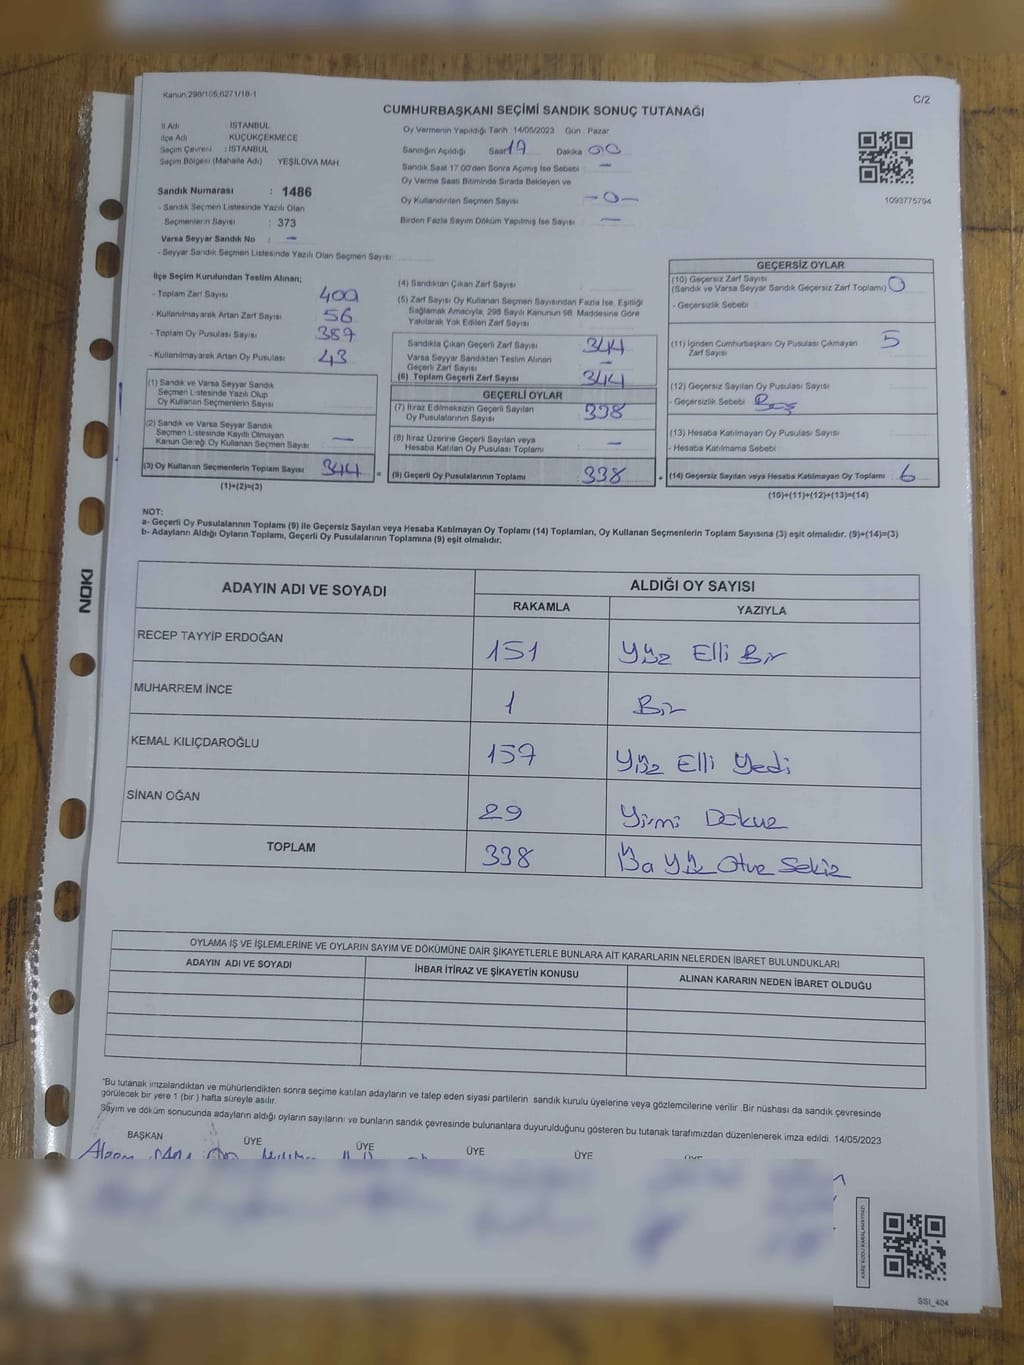 Kanun:298/105,6271/18-1
C/2
CUMHURBAŞKANI SEÇİMİ SANDIK SONUÇ TUTANAĞI
İl Adı : İSTANBUL
İlçe Adı : KÜÇÜKÇEKMECE
Seçim Çevresi : İSTANBUL
Seçim Bölgesi (Mahalle Adı) YEŞİLOVA MAH.
Sandık Numarası : 1486
- Sandık Seçmen Listesinde Yazılı Olan
Seçmenlerin Sayısı : 373
Varsa Seyyar Sandık No : -
- Seyyar Sandık Seçmen Listesinde Yazılı Olan Seçmen Sayısı:
Oy Vermenin Yapıldığı Tarih 14/05/2023 Gün : Pazar
Sandığın Açıldığı Saat 17 Dakika 00
Sandık Saat 17.00'den Sonra Açılmış İse Sebebi : -
Oy Verme Saati Bitiminde Sırada Bekleyen ve
Oy Kullandırılan Seçmen Sayısı -0-
Birden Fazla Sayım Döküm Yapılmış İse Sayısı : -
1093775794
İlçe Seçim Kurulundan Teslim Alınan;
- Toplam Zarf Sayısı 400
- Kullanılmayarak Artan Zarf Sayısı : 56
- Toplam Oy Pusulası Sayısı : 387
- Kullanılmayarak Artan Oy Pusulası : 43
(1) Sandık ve Varsa Seyyar Sandık
Seçmen Listesinde Yazılı Olup
Oy Kullanan Seçmenlerin Sayısı
(2) Sandık ve Varsa Seyyar Sandık
Seçmen Listesinde Kayıtlı Olmayan
Kanun Gereği Oy Kullanan Seçmen Sayısı : -
(3) Oy Kullanan Seçmenlerin Toplam Sayısı 344 =
(1)+(2)=(3)
(4) Sandıktan Çıkan Zarf Sayısı :
(5) Zarf Sayısı Oy Kullanan Seçmen Sayısından Fazla İse, Eşitliği
Sağlamak Amacıyla, 298 Sayılı Kanunun 98. Maddesine Göre
Yakılarak Yok Edilen Zarf Sayısı
Sandıkta Çıkan Geçerli Zarf Sayısı : 344
Varsa Seyyar Sandıktan Teslim Alınan
Geçerli Zarf Sayısı : -
(6) Toplam Geçerli Zarf Sayısı : 344
GEÇERLİ OYLAR
(7) İtiraz Edilmeksizin Geçerli Sayılan
Oy Pusulalarının Sayısı : 338
(8) İtiraz Üzerine Geçerli Sayılan veya
Hesaba Katılan Oy Pusulası Toplamı : -
(9) Geçerli Oy Pusulalarının Toplamı : 338 +
GEÇERSİZ OYLAR
(10) Geçersiz Zarf Sayısı
(Sandık ve Varsa Seyyar Sandık Geçersiz Zarf Toplamı) : 0
- Geçersizlik Sebebi :
(11) İçinden Cumhurbaşkanı Oy Pusulası Çıkmayan
Zarf Sayısı : 5
(12) Geçersiz Sayılan Oy Pusulası Sayısı :
- Geçersizlik Sebebi
(13) Hesaba Katılmayan Oy Pusulası Sayısı :
- Hesaba Katılmama Sebebi
(14) Geçersiz Sayılan veya Hesaba Katılmayan Oy Toplamı : 6
(10)+(11)+(12)+(13)=(14)
NOT:
a- Geçerli Oy Pusulalarının Toplamı (9) ile Geçersiz Sayılan veya Hesaba Katılmayan Oy Toplamı (14) Toplamları, Oy Kullanan Seçmenlerin Toplam Sayısına (3) eşit olmalıdır. (9)+(14)=(3)
b- Adayların Aldığı Oyların Toplamı, Geçerli Oy Pusulalarının Toplamına (9) eşit olmalıdır.
ADAYIN ADI VE SOYADI ALDIĞI OY SAYISI
RAKAMLA YAZIYLA
RECEP TAYYİP ERDOĞAN 151 Yüz Elli Bir
MUHARREM İNCE 1 Bir
KEMAL KILIÇDAROĞLU 157 Yüz Elli Yedi
SİNAN OĞAN 29 Yirmi Dokuz
TOPLAM 338 Üç Yüz Otuz Sekiz
OYLAMA İŞ VE İŞLEMLERİNE VE OYLARIN SAYIM VE DÖKÜMÜNE DAİR ŞİKAYETLERLE BUNLARA AİT KARARLARIN NELERDEN İBARET BULUNDUKLARI
ADAYIN ADI VE SOYADI İHBAR İTİRAZ VE ŞİKAYETİN KONUSU ALINAN KARARIN NEDEN İBARET OLDUĞU
*Bu tutanak imzalandıktan ve mühürlendikten sonra seçime katılan adayların ve talep eden siyasi partilerin sandık kurulu üyelerine veya gözlemcilerine verilir. Bir nüshası da sandık çevresinde
görülecek bir yere 1 (bir) hafta süreyle asılır.
Sayım ve döküm sonucunda adayların aldığı oyların sayılarını ve bunların sandık çevresinde bulunanlara duyurulduğunu gösteren bu tutanak tarafımızdan düzenlenerek imza edildi. 14/05/2023
BAŞKAN ÜYE ÜYE ÜYE ÜYE ÜYE
NOKI
SSI_404